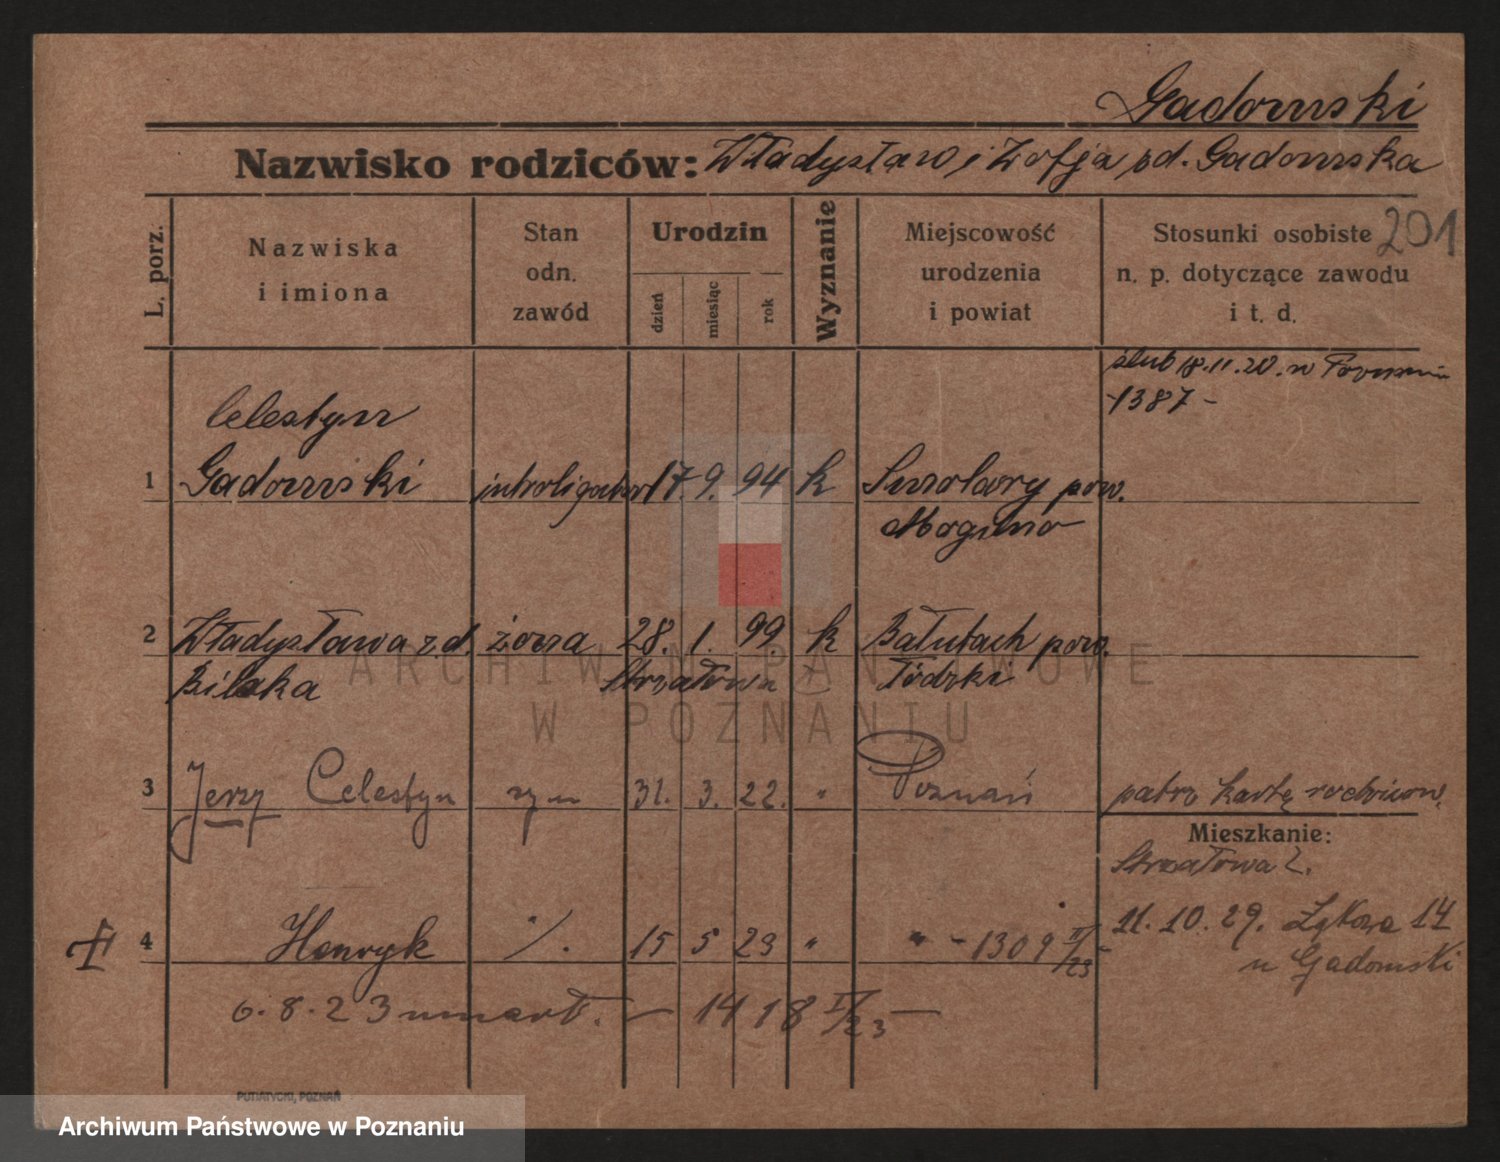 Gadomski
Nazwisko rodziców: Władysław i Zofja pd. Gadomska
201
L. porz.
Nazwiska i imiona
Stan odn. zawód
Urodzin
dzień
miesiąc
rok
Wyznanie
Miejscowość urodzenia i powiat
Stosunki osobiste n. p. dotyczące zawodu i t. d.
ślub 18.11.20. w Poznaniu
-1387-
Celestyn
1 Gadomski introligator 17. 9. 94 k Smolary pow.
Mogilno
2 Władysława z.d. żona 28. 1. 99. k Bałutach pow.
Bilska Strzałowa Łódzki
3 Jerzy Celestyn syn 31. 3. 22. " Poznań patrz kartę rodzicow.
Mieszkanie:
Strzałowa 2.
11.10.29. Łąkowa 14
u Gadomski
4 Henryk ./. 15 5 23 " " - 1309 II/23
6.8.23 umarł. - 1418 II/23 -
PUTIATYCKI, POZNAŃ
ARCHIWUM PAŃSTWOWE
W POZNANIU
Archiwum Państwowe w Poznaniu